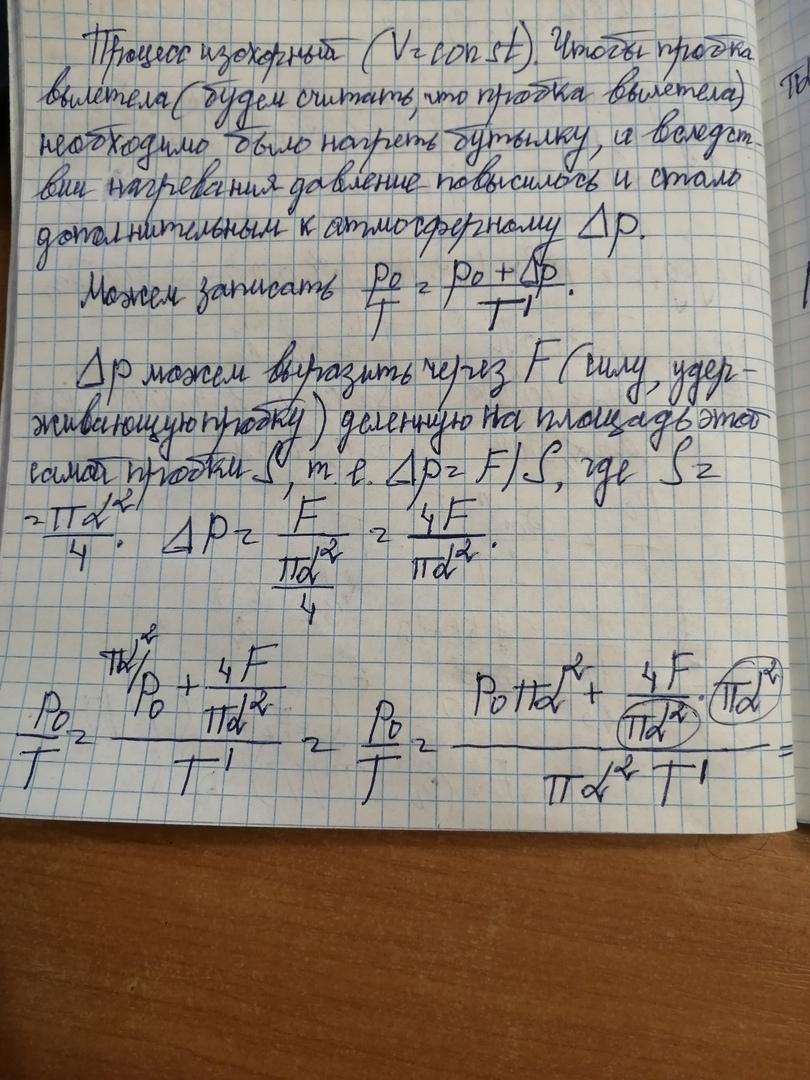 Процесс изохорный (V=const). Чтобы пробка
вылетела (будем считать, что пробка вылетела)
необходимо было нагреть бутылку, а вследст-
вии нагревания давление повысилось и стало
дополнительным к атмосферному Δp.
Можем записать p₀/T = (p₀ + Δp)/T'.
Δp можем выразить через F (силу, удер-
живающую пробку) деленную на площадь этой
самой пробки S, т. е. Δp = F/S, где S =
= πd²/4. Δp = F/(πd²/4) = 4F/πd².
p₀/T = (πd²/ p₀ + 4F/πd²)/T' = p₀/T = (p₀πd² + 4F/πd² · πd²)/(πd² T') =
πd